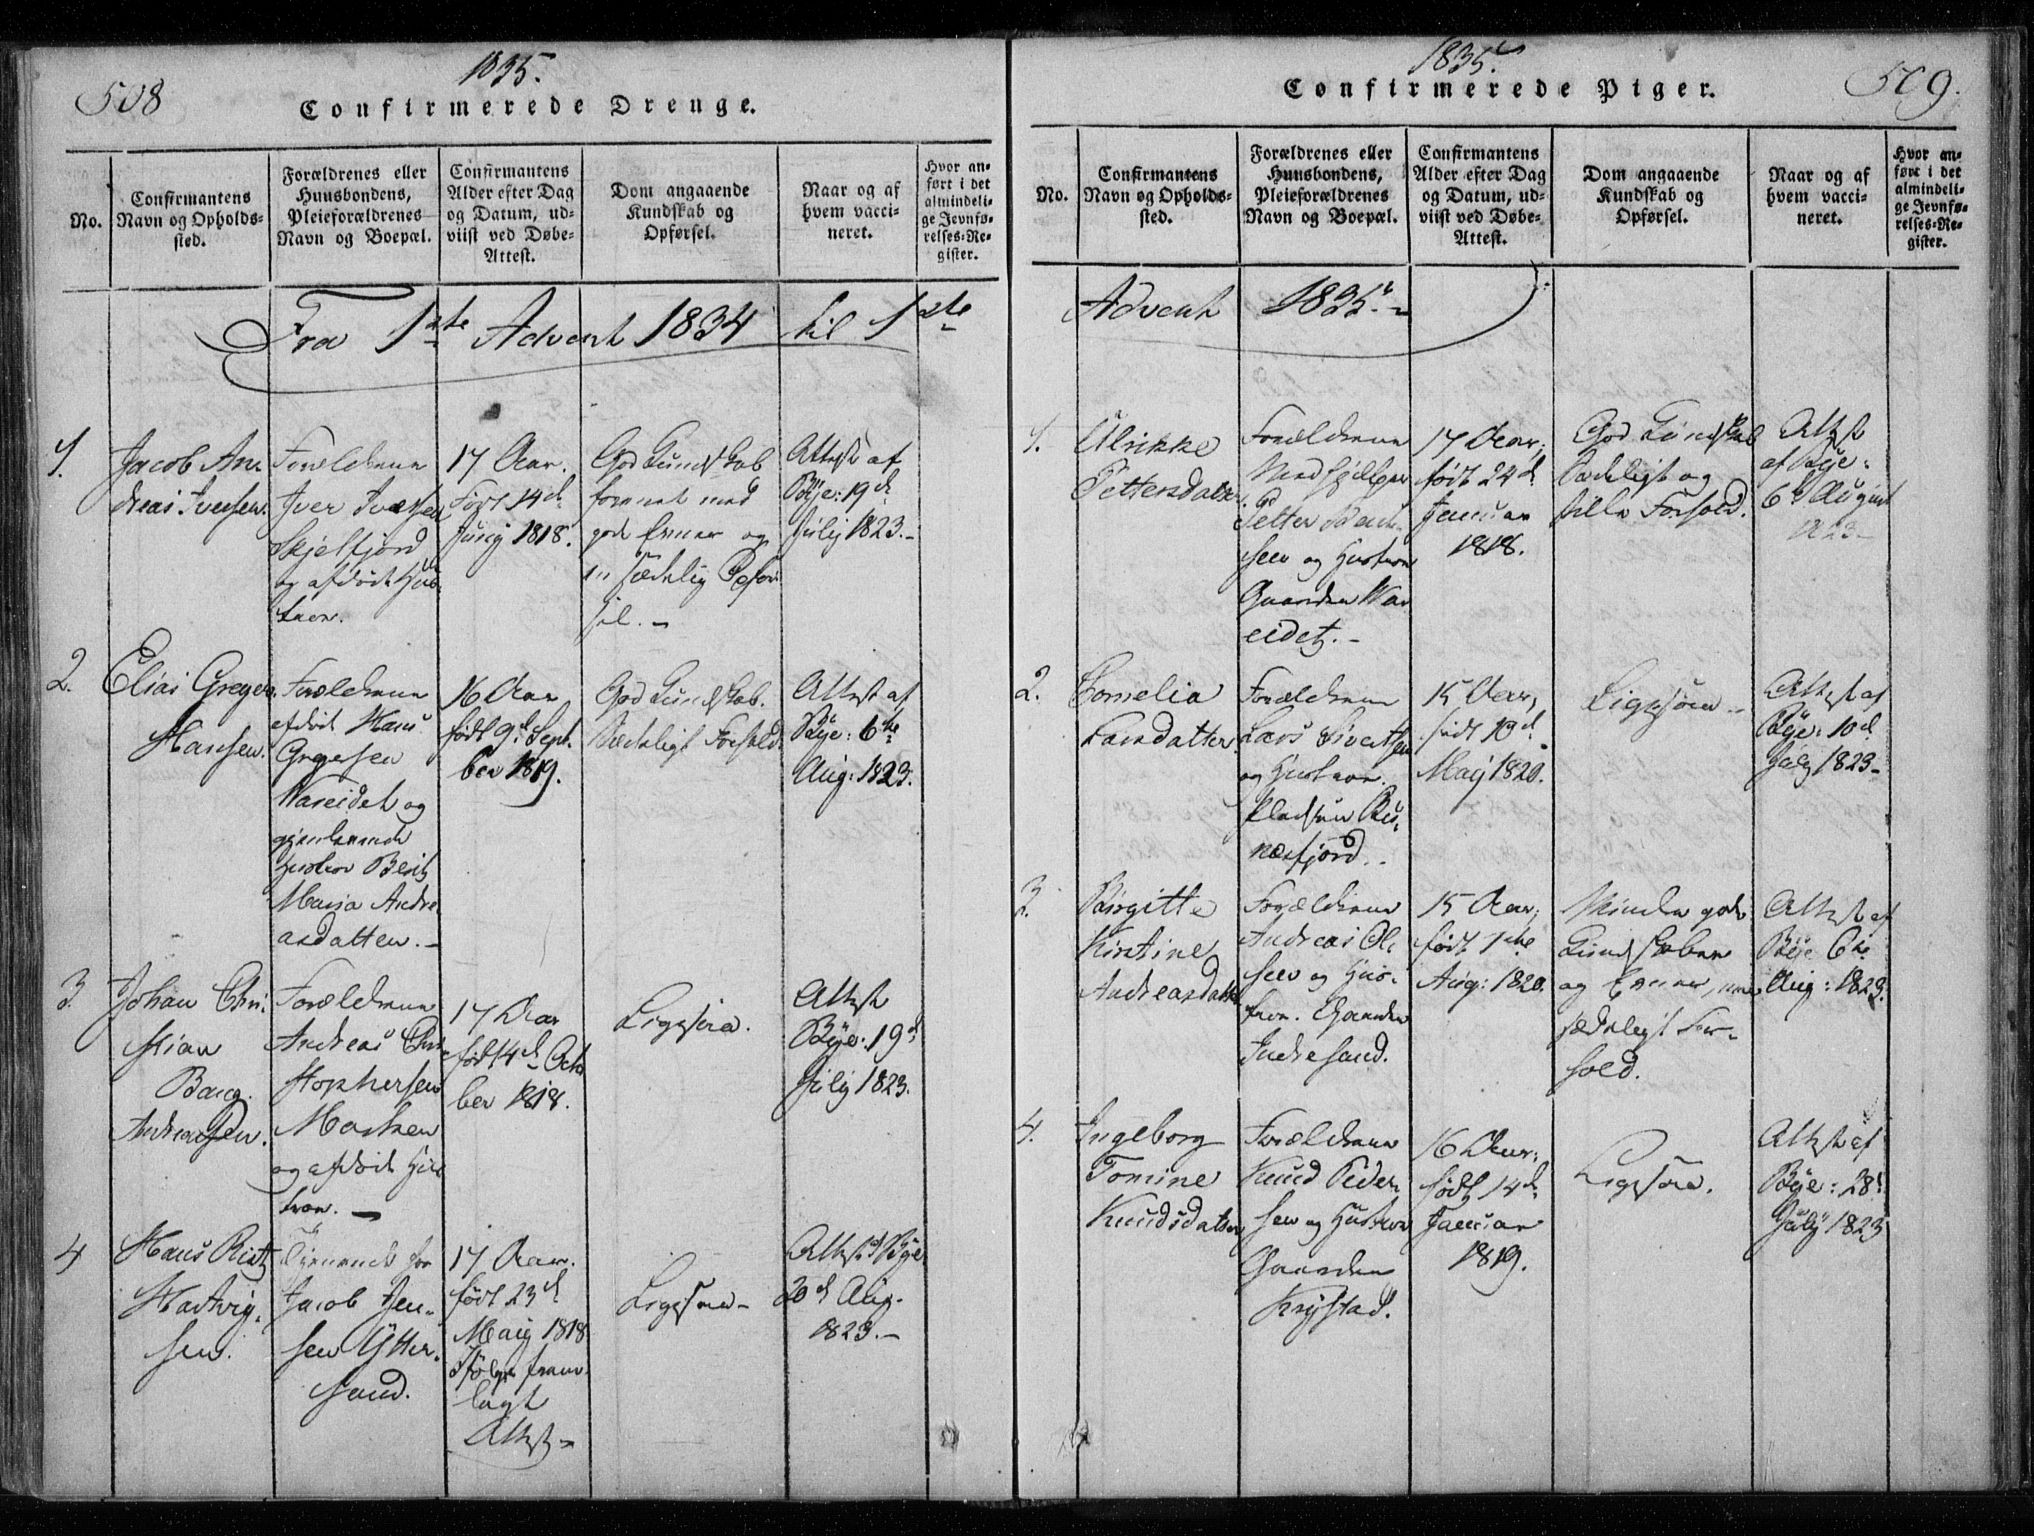 508
1835.
Confirmerede Drenge.
No.
Confirmantens
Navn og Opholds-
sted.
Forældrenes eller
Huusbondens,
Pleieforældrenes
Navn og Boepæl.
Confirmantens
Alder efter Dag
og Datum, ud-
viist ved Døbe-
Attest.
Dom angaaende
Kundskab og
Opførsel.
Naar og af
hvem vacci-
neret.
Hvor an-
ført i det
almindeli-
ge Jevnfø-
relses-Re-
gister.
Fra 1ste Advent 1834 til 1ste
1.
Jacob An-
dreas Iversen.
Forældrene
Iver Iversen
Skjelfjord
og afdøde Hus-
troe.
17 Aar.
Født 14d
Junij 1818.
God Kundskab
forenet med
gode Evner og
en sædelig Opfør-
sel. -
Attest af
Bye: 19d
Julij 1823. -
2.
Elias Greger
Hansen.
Forældrene
afdøde Hans
Gregersen
Nareidet og
gjenlevende
Hustroe Berit
Maria Andre-
asdatter. -
16 Aar
født 9d Sept-
ber 1819.
God Kundskab.
Sædeligt Forhold.
Attest af
Bye: 6te
Aug: 1823.
3.
Johan Chri-
stian
Bang
Andreasen.
Forældrene
Andreas Chri-
stophersen
Mosken
og afdøde Hus-
troe. -
17 Aar
født 4d Octo
ber 1818.
Ligesaa.
Attest
Bye: 19d
Julij 1823.
4
Hans Rist
Hartvig-
sen.
Tjenende for
Jacob Jen-
sen Ytter-
sand.
17 Aar.
født 23d
Maij 1818
Ifølge frem-
lagt
Attest -
Ligesaa -
Attest Bye
20d Aug.
1823. -
509.
1835.
Confirmerede Piger.
No.
Confirmantens
Navn og Opholds-
sted.
Forældrenes eller
Huusbondens,
Pleieforældrenes
Navn og Boepæl.
Confirmantens
Alder efter Dag
og Datum, ud-
viist ved Døbe-
Attest.
Dom angaaende
Kundskab og
Opførsel.
Naar og af
hvem vacci-
neret.
Hvor an-
ført i det
almindeli-
ge Jevnfø-
relses-Re-
gister.
Advent 1835. -
1.
Ulrikke
Pettersdatter
Forældrene
Medhjelper
Petter
sen og Hustroe
Gaarden Nar
eidet. -
17 Aar,
født 24d
Januar
1818.
God Kundskab
sædeligt og
stille Forhold.
Attest
af Bye:
6d August
1823 -
2.
Cornelia
Larsdatter
Forældrene
Lars Sivertsen
og Hustroe.
Pladsen
næsfjord.
15 Aar,
født 19d
Maij 1820.
Ligesaa -
Attest af
Bye: 10d
July 1823 -
3.
Birgitte
Kirstine
Andreasdatter
Forældrene
Andreas Ol-
sen og Hus-
troe. Gaarden
Indresand.
15 Aar;
født 1ste
Aug: 1820.
Mindre gode
Kundskaber
og Evner, men
sædeligt For-
hold.
Attest af
Bye 6te
Aug: 1823.
4.
Ingeborg
Tomine
Knudsdatter
Forældrene
Knud Peder-
sen og Hustroe
Gaarden
Krystad.
16 Aar:
født 14d
Januar
1819.
Ligesaa.
Attest af
Bye: 28d
July 1823